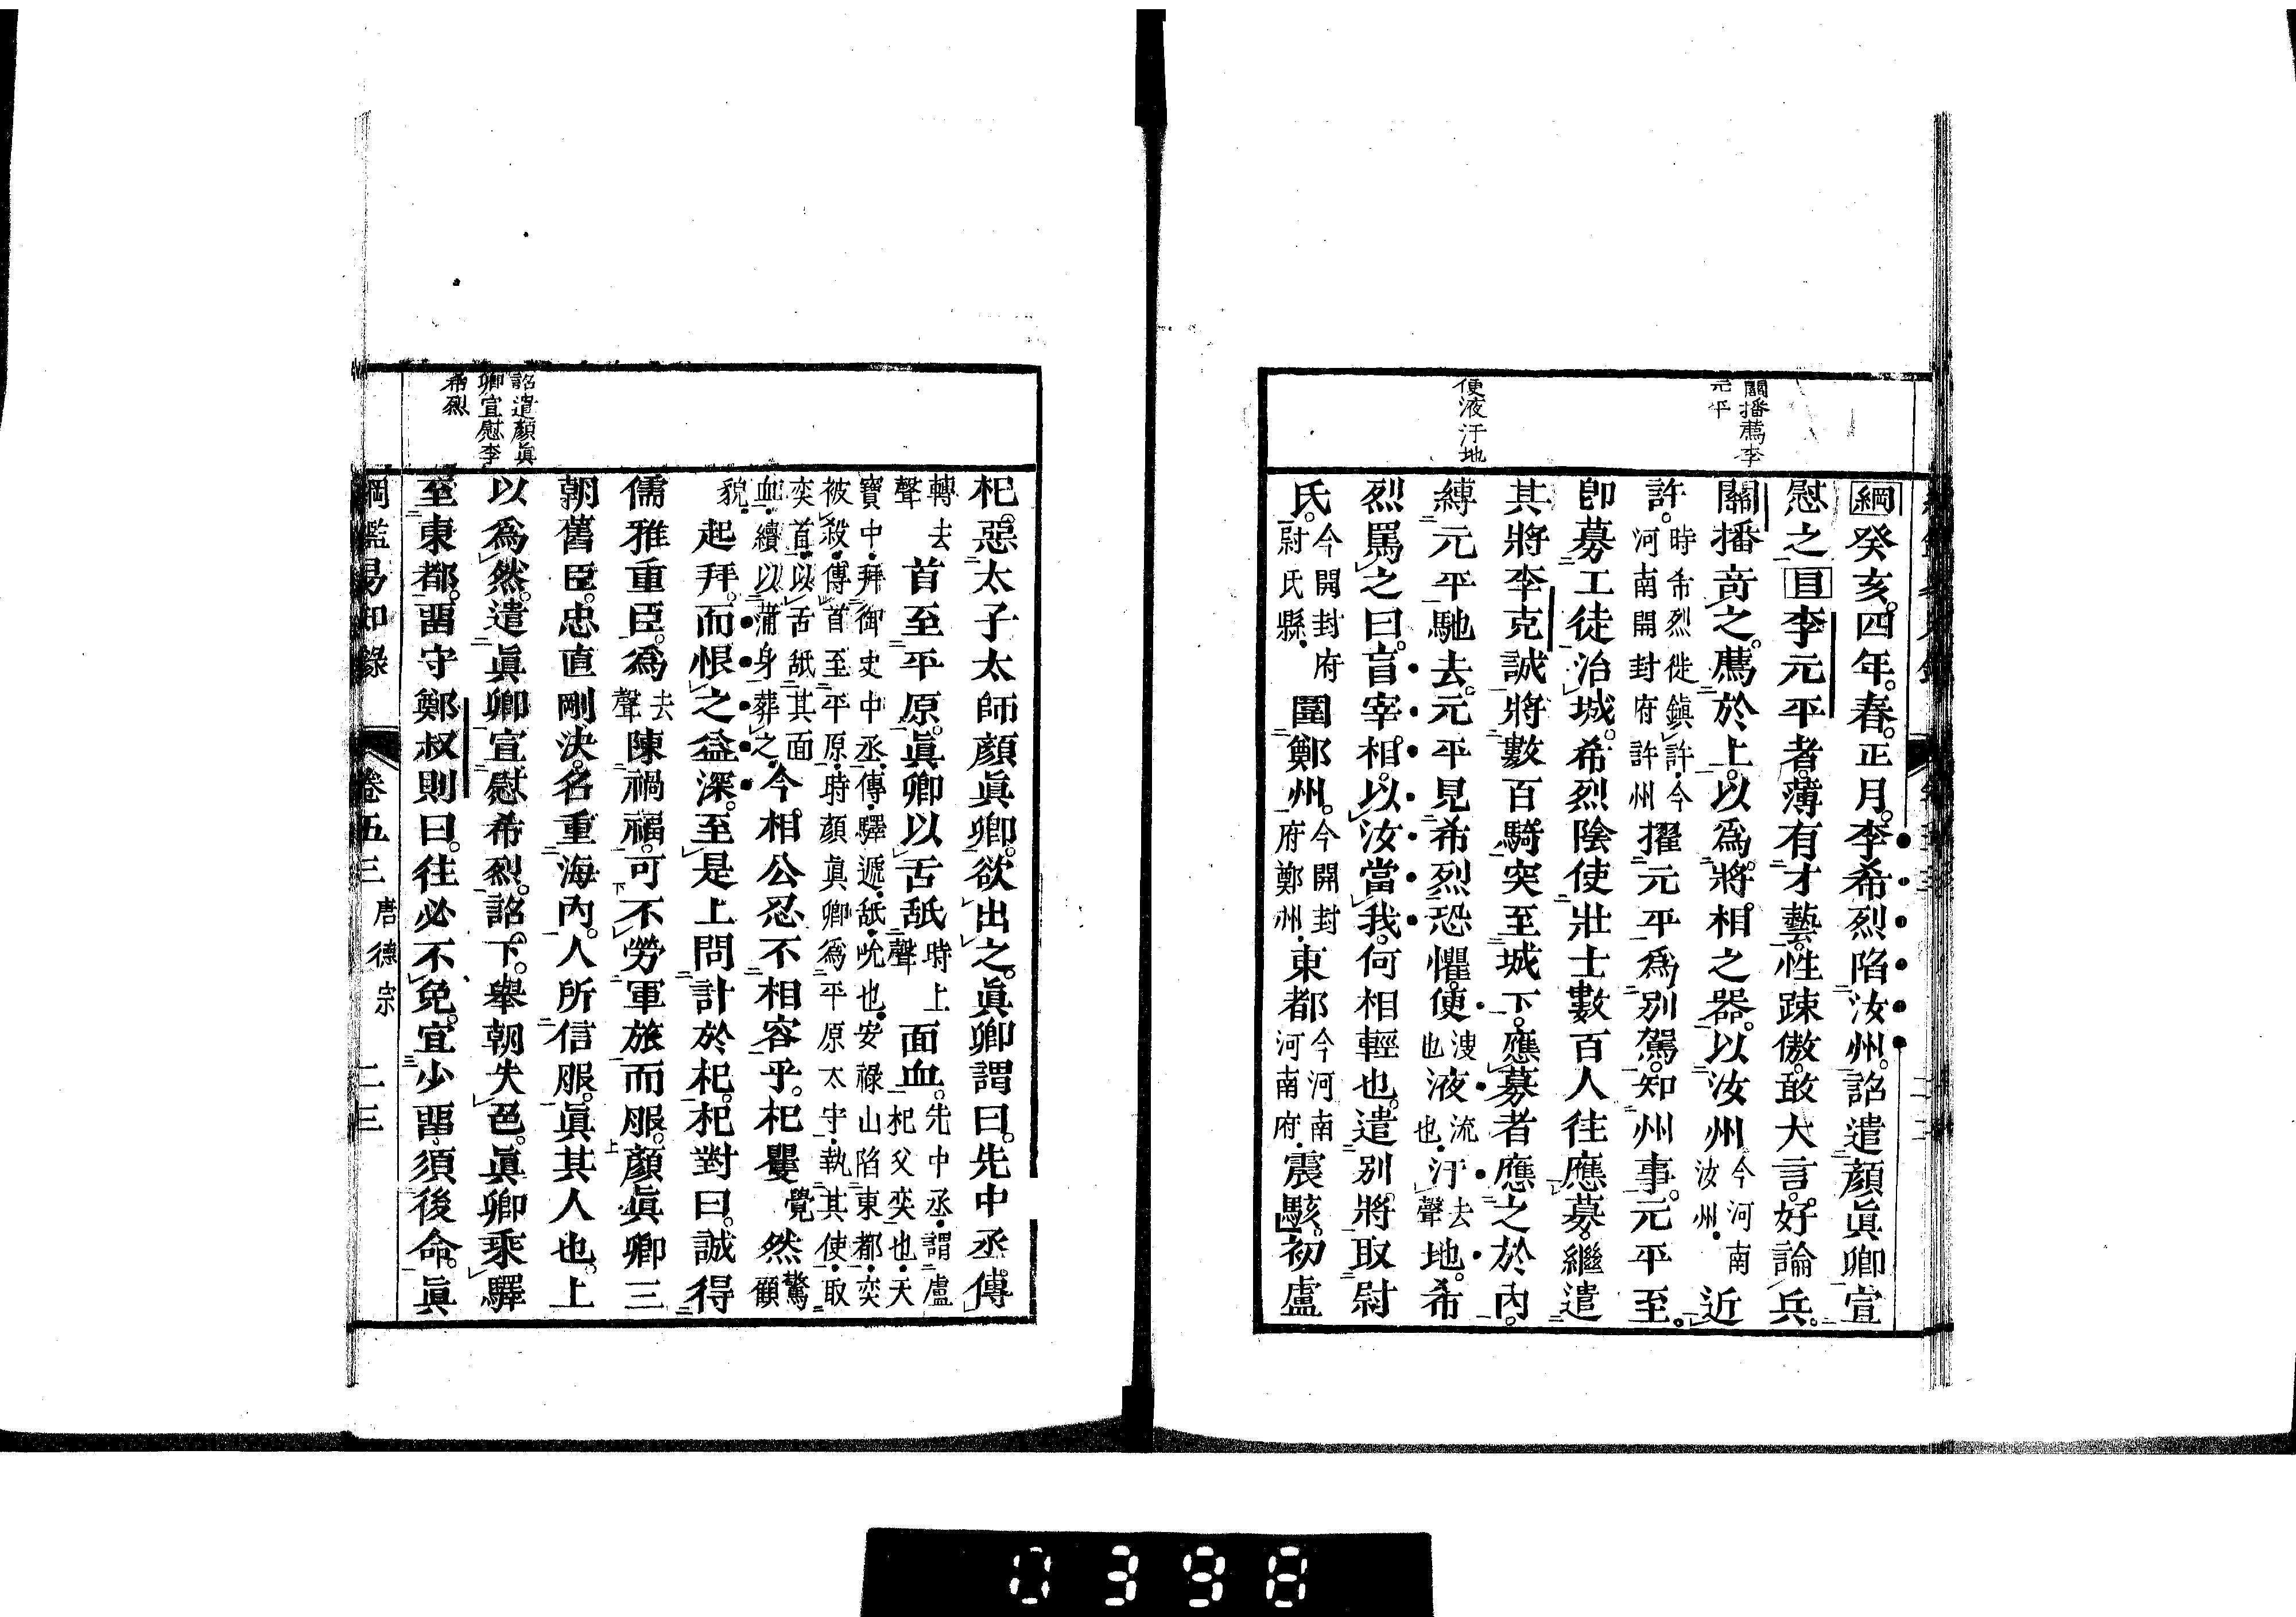 關播薦李
元平
便液汙地
綱癸亥。四年。春。正月。李希烈陷汝州。詔遣顏眞卿宣
慰之目李元平者。薄有才藝。性踈傲。敢大言。好論兵。
關播竒之。薦於上。以爲將。相之器。以汝州今河南汝州。近
許。時希烈徙鎮許。今河南開封府許州擢元平爲別駕。知州事。元平至。
卽募工徒治城。希烈陰使壯士數百人往應募。繼遣
其將李克誠將數百騎突至城下。應募者應之於內。
縛元平馳去。元平見希烈恐懼。便溲也液流也。汙去聲地。希
烈罵之曰。盲宰。相。以汝當我。何相輕也。遣別。將取尉
氏。今開封府尉氏縣。圍鄭州。今開封府鄭州。東都今河南河南府。震駭。初盧
詔遣顏眞
卿宣慰李
希烈
杞。惡太子太師顏眞卿。欲出之。眞卿謂曰。先中丞。傳
轉去聲首至平原。眞卿以舌舐時上聲面血。先中丞。謂盧杞父奕也。天
寶中。拜御史中丞。傳。驛遞。舐。吮也。安祿山陷東都。奕被殺。傳首至平原。時顏眞卿爲平原太守。執其使。取
奕首。以舌舐其面血。續以蒲身葬之。今相公忍不相容乎。杞矍覺然驚顧
貌。起拜。而恨之益深。至是上問計於杞。杞對曰。誠得
儒雅重臣。爲去聲陳禍福。可不勞軍旅而服。顏眞卿三
朝舊臣。忠直剛決。名重海內。人所信服。眞其人也。上
以爲然。遣眞卿宣慰希烈。詔下。舉朝失色。眞卿乘驛
至東都。畱守鄭叔則曰。往必不免。宜少畱須後命。眞
綱鑑易知錄 卷五三 唐德宗 二三
0398